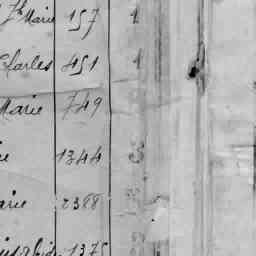 Marie 157 1
Charles 451 1
Marie 749
1344 3
arie 2388
1375